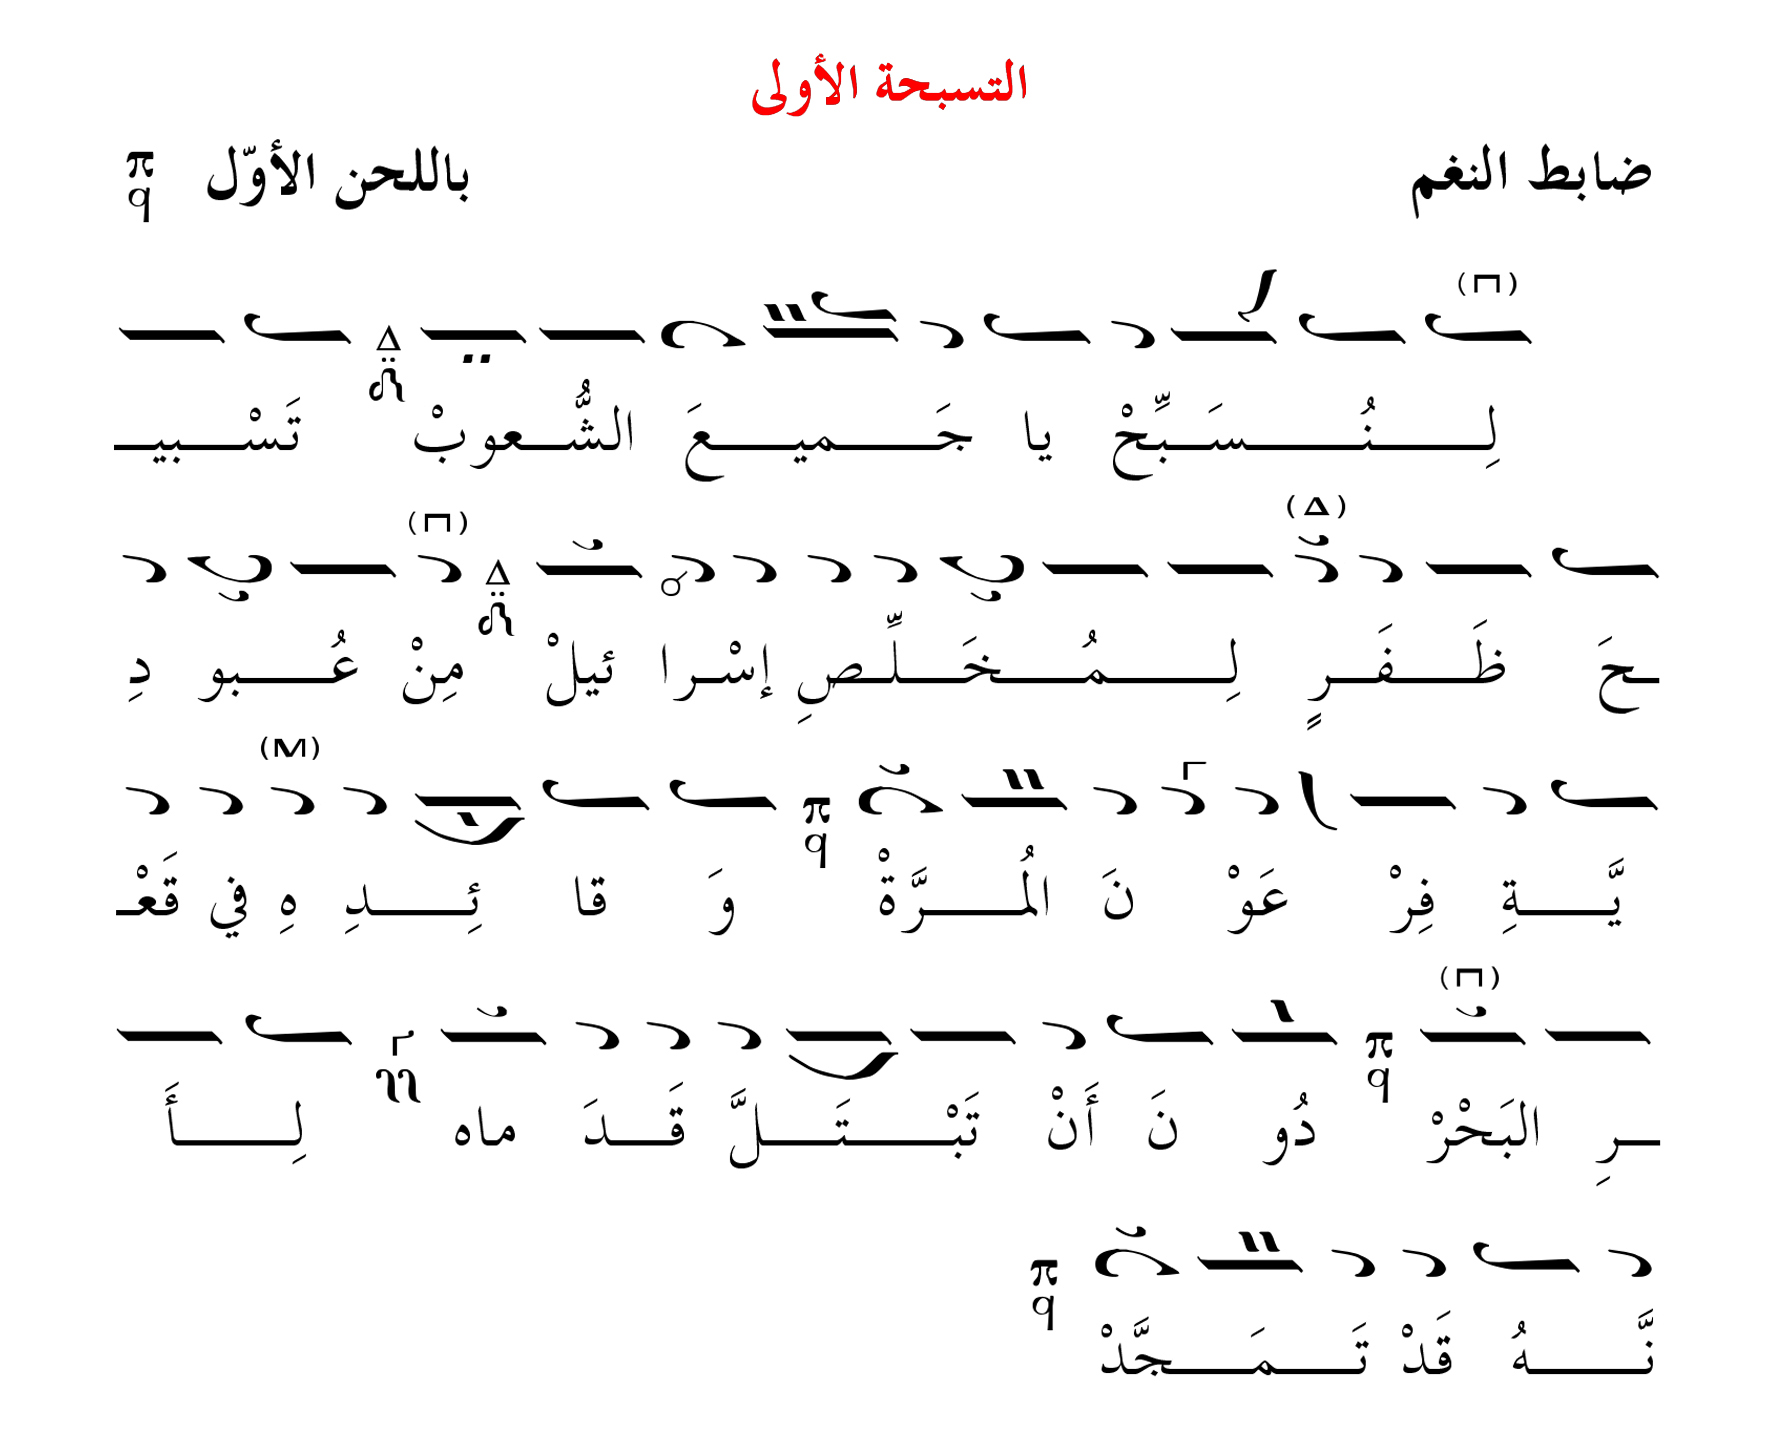 التسبحة الأولى
ضابط النغم باللحن الأوّل π q
(Π) Δ
لِـــنُـــسَـــبِّحْ يا جَـــمـيـــعَ الشُّـــعوبْ تَسْـــبيـ
(Δ) Δ (Π)
ـحَ ظَـــفَـــرٍ لِـــمُـــخَـــلِّـصِ إسْـرا ئيلْ مِنْ عُـــبو دِ
Γ π q (Μ)
يَّـــةِ فِرْ عَوْ نَ المُـــرَّةْ وَ قا ئِـــدِ هِ في قَعْـ
(Π) π q Γ
ـرِ البَحْرْ دُو نَ أَنْ تَبْـــتَـــلَّ قَـــدَ ماه لِـــأَ
π q
نَّـــهُ قَدْ تَـــمَـــجَّدْ